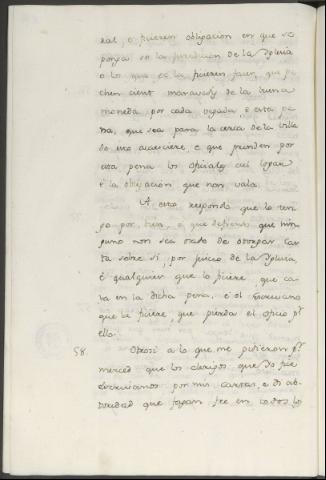 ral, o ficieren obligacion en que se
ponga so la jurediccion de la Iglesia
o los que ge la ficieren facer, que pe
chen cient maravedis de la buena
moneda por cada vegada, e esta pe
na, que sea para la cerca de la villa
do esto acaesciere, e que prenden por
esta pena los oficiales del logar
e la obligacion que non vala.
A esto respondo que lo ten
go por bien, e que defiendo que nin
guno non sea osado de otorgar Car
ta sobre si, por juicio de la Iglesia,
e qualquier que lo ficiere, que ca
ya en la dicha pena, e el Escrivano
que la ficiere, que pierda el oficio pr
ello.
58. Otrosi a lo que me pidieron pr
merced que los clerigos que Yo fice
escrivanos por mis cartas, e di ab
toridad que fagan fee en todos lo